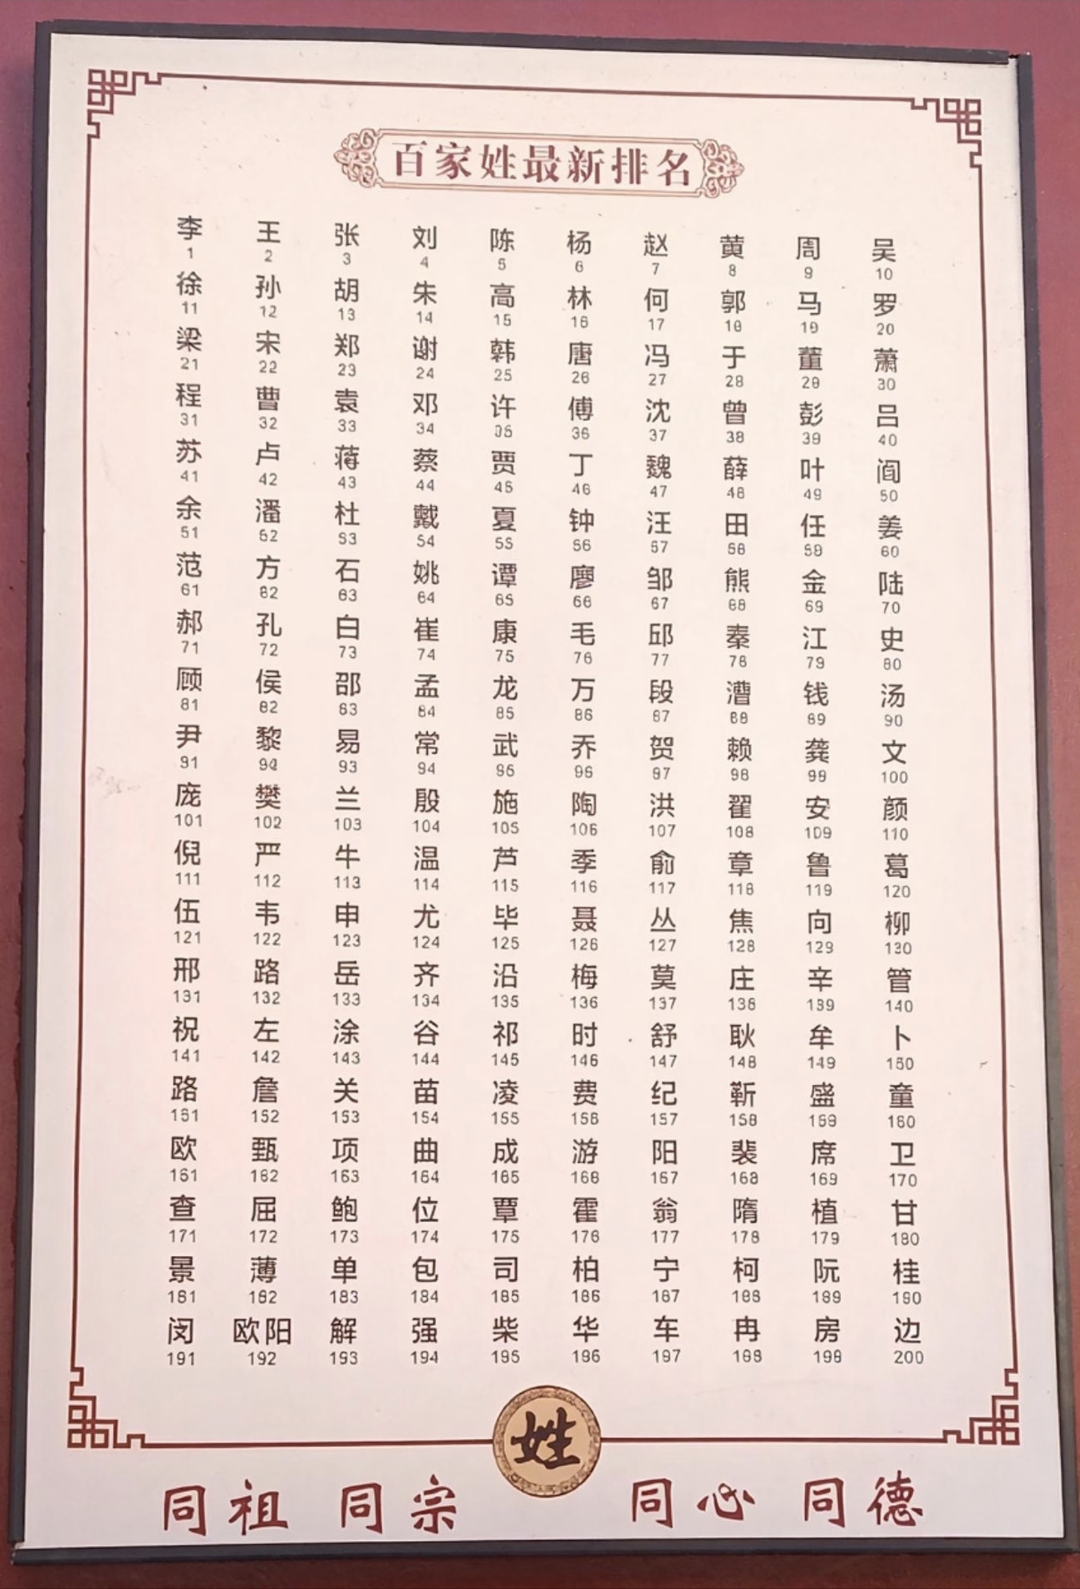 百家姓最新排名
李 王 张 刘 陈 杨 赵 黄 周 吴
1 2 3 4 5 6 7 8 9 10
徐 孙 胡 朱 高 林 何 郭 马 罗
11 12 13 14 15 16 17 18 19 20
梁 宋 郑 谢 韩 唐 冯 于 董 萧
21 22 23 24 25 26 27 28 29 30
程 曹 袁 邓 许 傅 沈 曾 彭 吕
31 32 33 34 35 36 37 38 39 40
苏 卢 蒋 蔡 贾 丁 魏 薛 叶 阎
41 42 43 44 45 46 47 48 49 50
余 潘 杜 戴 夏 钟 汪 田 任 姜
51 52 53 54 55 56 57 58 59 60
范 方 石 姚 谭 廖 邹 熊 金 陆
61 62 63 64 65 66 67 68 69 70
郝 孔 白 崔 康 毛 邱 秦 江 史
71 72 73 74 75 76 77 78 79 80
顾 侯 邵 孟 龙 万 段 漕 钱 汤
81 82 83 84 85 86 87 88 89 90
尹 黎 易 常 武 乔 贺 赖 龚 文
91 92 93 94 95 96 97 98 99 100
庞 樊 兰 殷 施 陶 洪 翟 安 颜
101 102 103 104 105 106 107 108 109 110
倪 严 牛 温 芦 季 俞 章 鲁 葛
111 112 113 114 115 116 117 118 119 120
伍 韦 申 尤 毕 聂 丛 焦 向 柳
121 122 123 124 125 126 127 128 129 130
邢 路 岳 齐 沿 梅 莫 庄 辛 管
131 132 133 134 135 136 137 138 139 140
祝 左 涂 谷 祁 时 舒 耿 牟 卜
141 142 143 144 145 146 147 148 149 150
路 詹 关 苗 凌 费 纪 靳 盛 童
151 152 153 154 155 156 157 158 159 160
欧 甄 项 曲 成 游 阳 裴 席 卫
161 162 163 164 165 166 167 168 169 170
查 屈 鲍 位 覃 霍 翁 隋 植 甘
171 172 173 174 175 176 177 178 179 180
景 薄 单 包 司 柏 宁 柯 阮 桂
181 182 183 184 185 186 187 188 189 190
闵 欧阳 解 强 柴 华 车 冉 房 边
191 192 193 194 195 196 197 198 199 200
姓
同祖 同宗 同心 同德